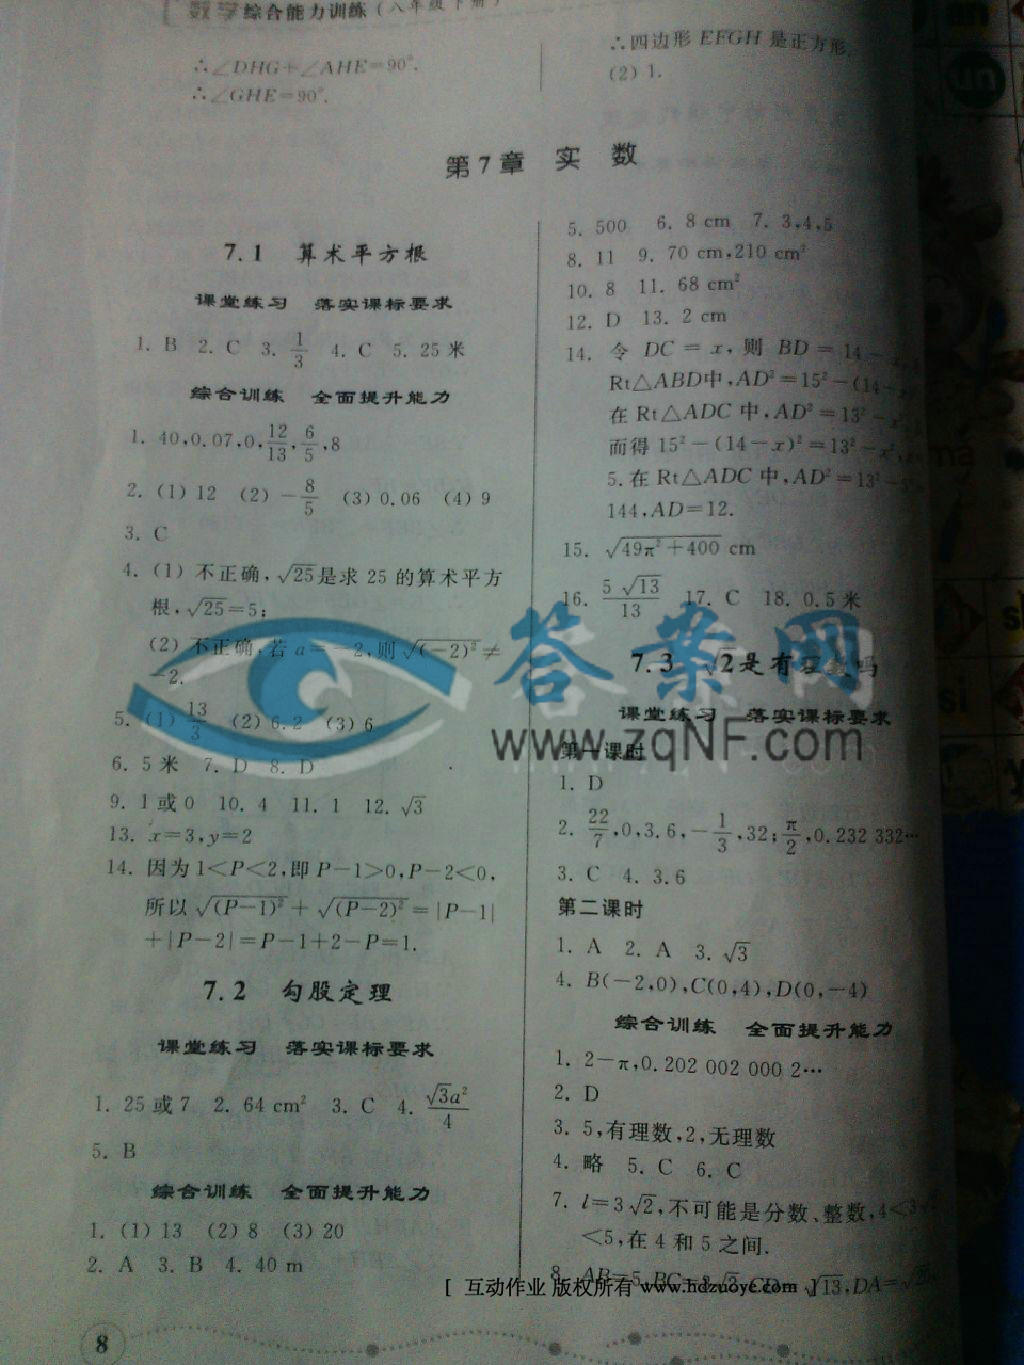 数学综合能力训练(八年级下册)
∴∠DHG+∠AHE=90°.
∴∠GHE=90°.
∴四边形EFGH是正方形.
(2) 1.
第7章 实 数
7.1 算术平方根
课堂练习 落实课标要求
1. B 2. C 3. 1/3 4. C 5. 25米
综合训练 全面提升能力
1. 40,0.07,0,12/13,6/5,8
2. (1) 12 (2) -8/5 (3) 0.06 (4) 9
3. C
4. (1) 不正确,√25是求25的算术平方
根,√25=5;
(2) 不正确,若a=-2,则√(-2)²≠
-2.
5. (1) 13/3 (2) 6.2 (3) 6
6. 5米 7. D 8. D
9. 1或0 10. 4 11. 1 12. √3
13. x=3,y=2
14. 因为1<P<2,即P-1>0,P-2<0,
所以√(P-1)²+√(P-2)²=|P-1|
+|P-2|=P-1+2-P=1.
7.2 勾股定理
课堂练习 落实课标要求
1. 25或7 2. 64 cm² 3. C 4. √3a²/4
5. B
综合训练 全面提升能力
1. (1) 13 (2) 8 (3) 20
2. A 3. B 4. 40 m
5. 500 6. 8 cm 7. 3,4,5
8. 11 9. 70 cm,210 cm²
10. 8 11. 68 cm²
12. D 13. 2 cm
14. 令DC=x,则BD=14-x,
Rt△ABD中,AD²=15²-(14-x
在Rt△ADC中,AD²=13²-x²,
而得15²-(14-x)²=13²-x²,
5.在Rt△ADC中,AD²=13²-5²
144,AD=12.
15. √49π²+400 cm
16. 5√13/13 17. C 18. 0.5米
7.3 √2是有理数吗
课堂练习 落实课标要求
第一课时
1. D
2. 22/7,0,3.6,-1/3,32;π/2,0.232 332…
3. C 4. 3.6
第二课时
1. A 2. A 3. √3
4. B(-2,0),C(0,4),D(0,-4)
综合训练 全面提升能力
1. 2-π,0.202 002 000 2…
2. D
3. 5,有理数,2,无理数
4. 略 5. C 6. C
7. l=3√2,不可能是分数、整数,4<3√2
<5,在4和5之间.
8. AB=5,BC=3√2,CD=√13,DA=
8
答案网
www.zqNF.com
[ 互动作业 版权所有 www.hdzuoye.com ]